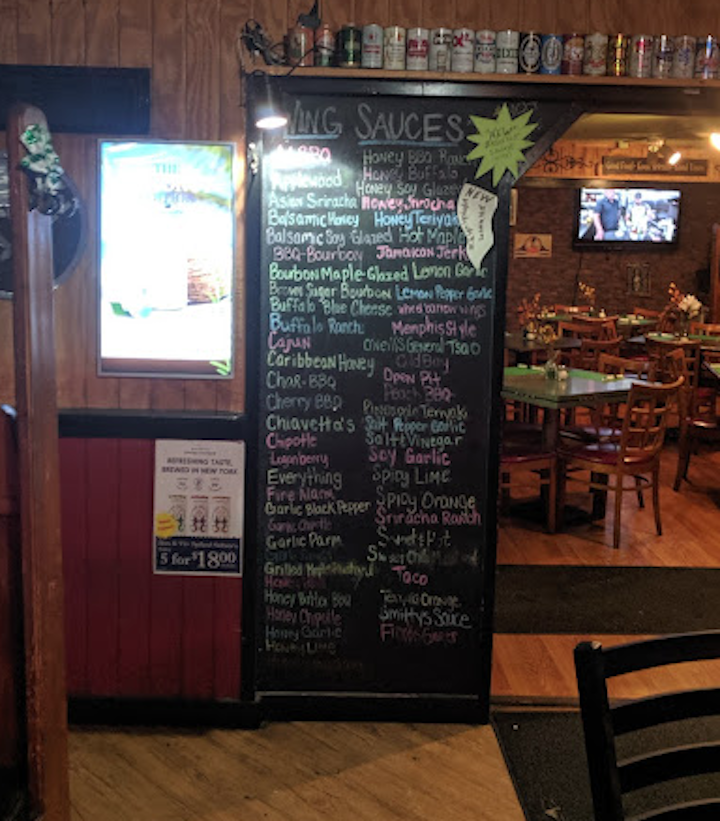 WING SAUCES
BBQ
Applewood
Asian Sriracha
Balsamic Honey
Balsamic Soy Glazed
BBQ-Bourbon
Bourbon Maple Glazed
Brown Sugar Bourbon
Buffalo Blue Cheese
Buffalo Ranch
Cajun
Caribbean Honey
Char-BBQ
Cherry BBQ
Chiavetta's
Chipotle
Everything
Fire Alarm
Garlic Black Pepper
Garlic Chipotle
Garlic Parm
Grilled Maple Mustard
Honey Butter BBQ
Honey Chipotle
Honey Garlic
Honey Lime
Honey BBQ Ranch
Honey Buffalo
Honey Soy Glazed
Honey Sriracha
Honey Teriyaki
Hot Maple
Jamaican Jerk
Lemon Garlic
Lemon Pepper Garlic
Memphis Style
General Tsao
Old Bay
Open Pit
Peach BBQ
Pineapple Teriyaki
Salt Pepper Garlic
Salt & Vinegar
Soy Garlic
Spicy Lime
Spicy Orange
Sriracha Ranch
Sweet & Hot
Taco
Teriyaki Orange
Smitty's Sauce
NEW
REFRESHING TASTE,
BREWED IN NEW YORK
5 for $18.00